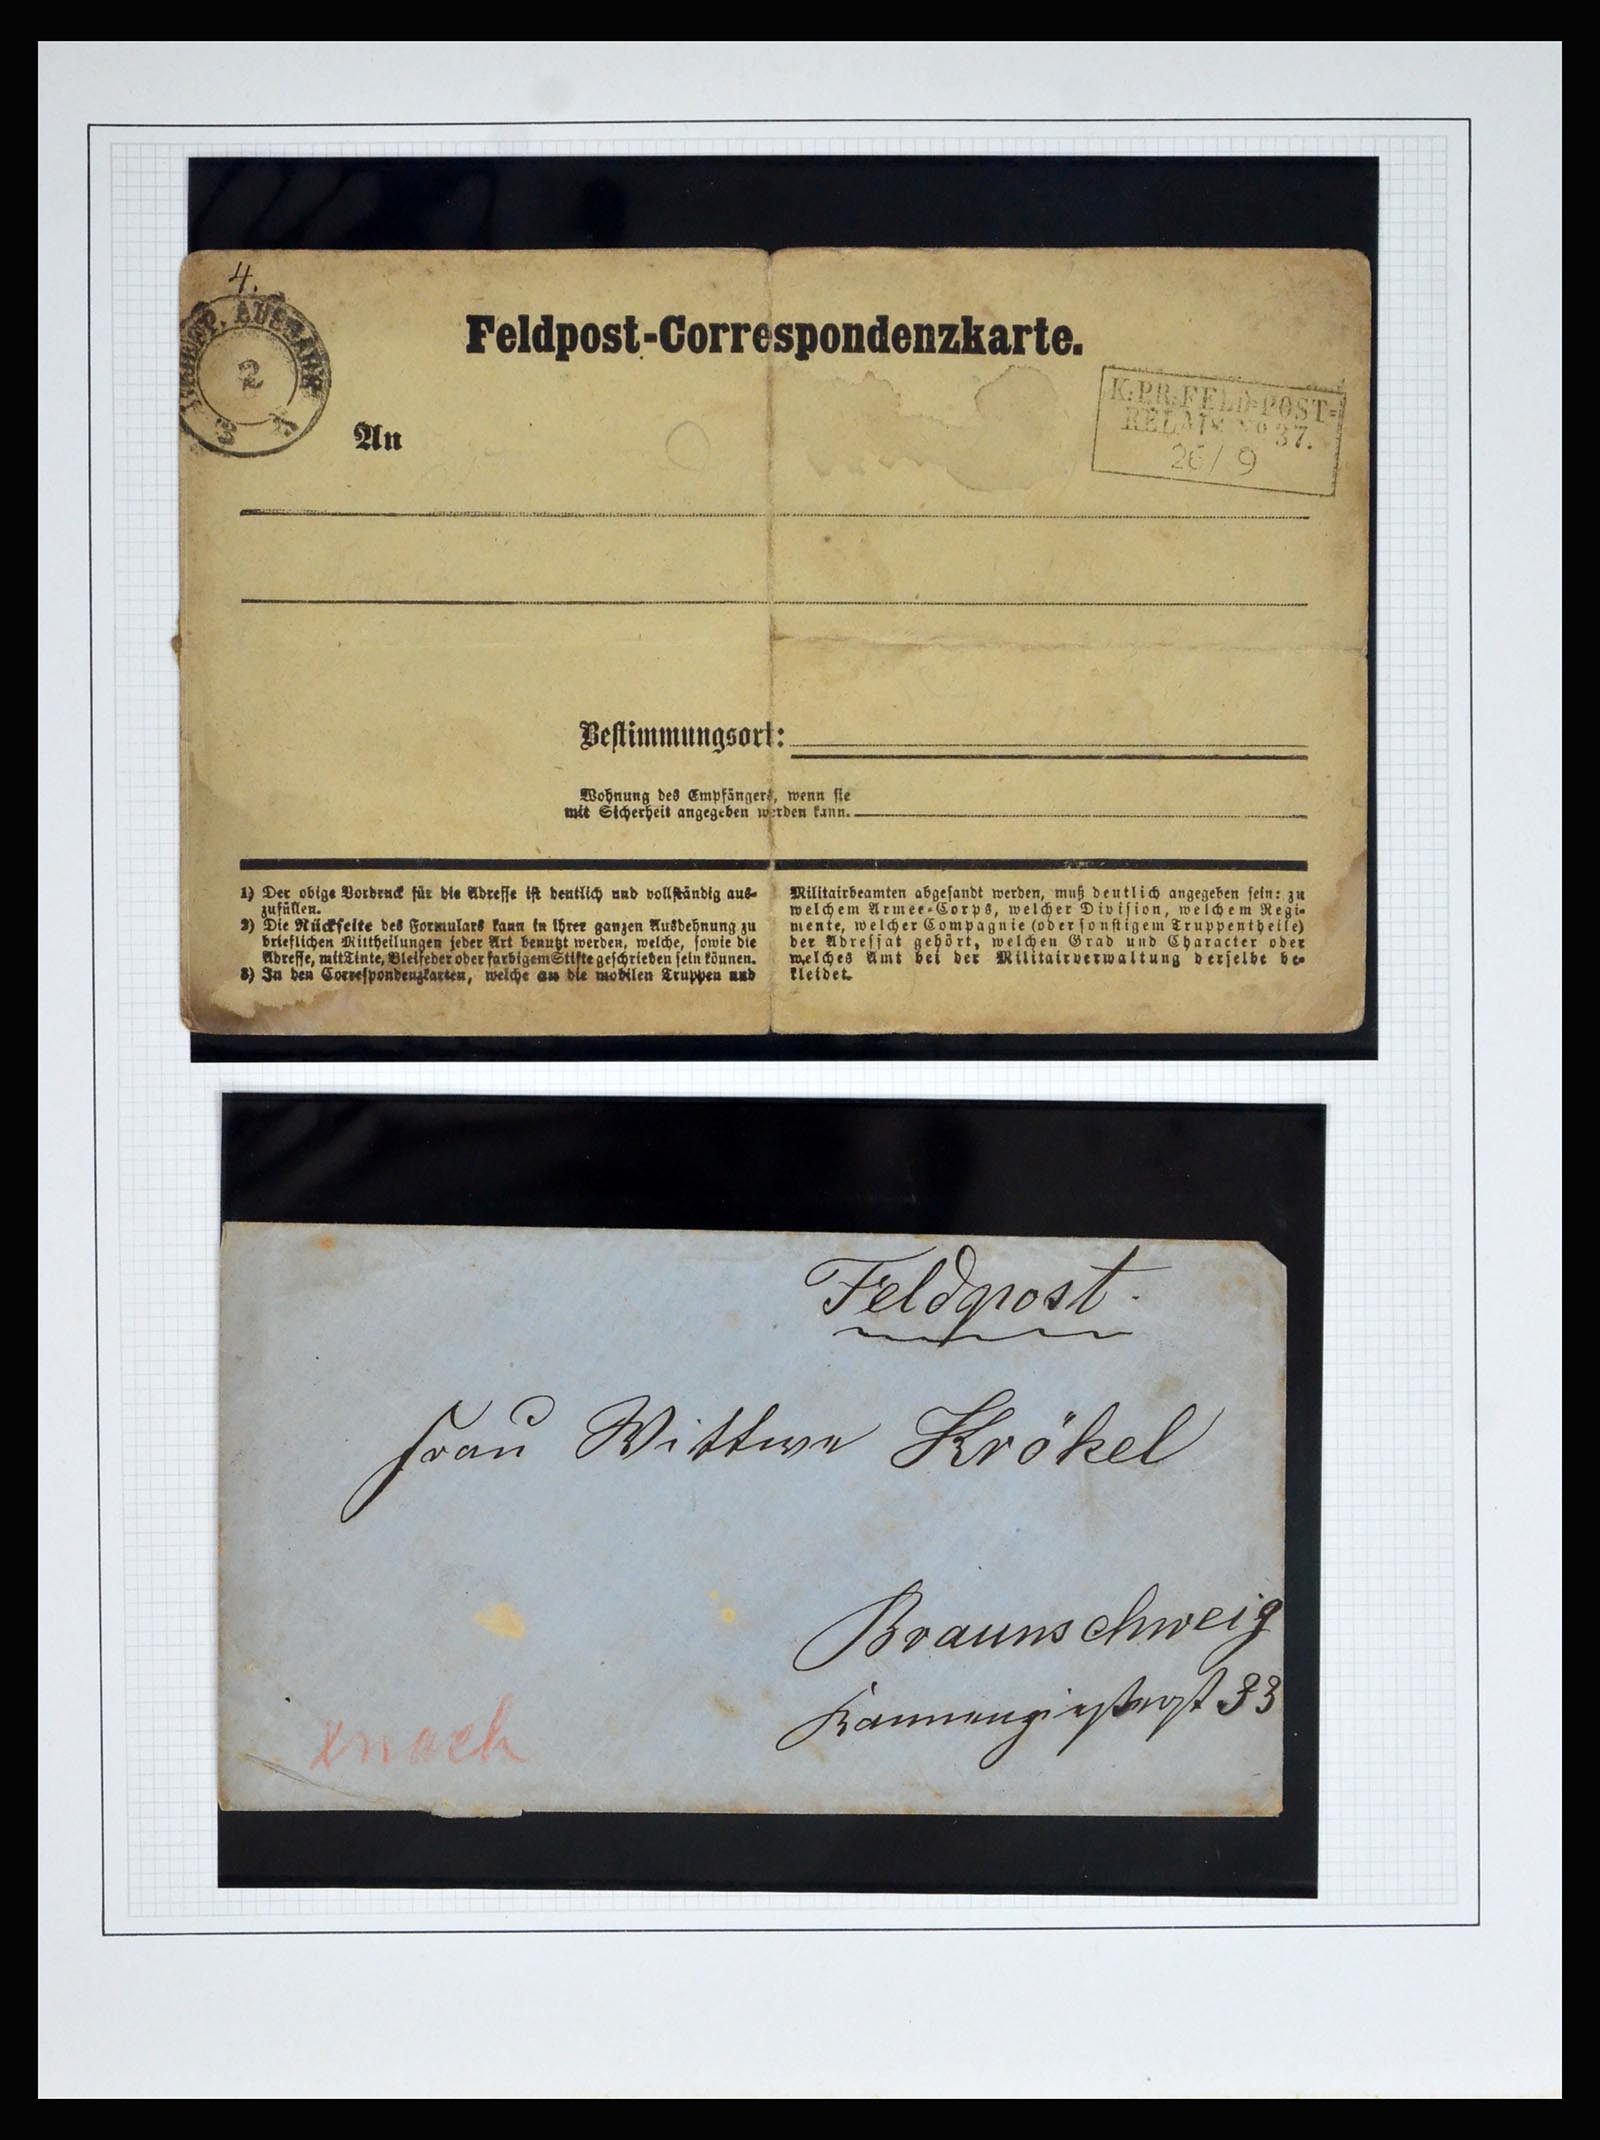 4.
AUSGABE
2
Feldpost-Correspondenzkarte.
K:PR:FELD-POST-
RELAIS No 37.
26/9
An
Bestimmungsort:
Wohnung des Empfängers, wenn sie
mit Sicherheit angegeben werden kann.
1) Der obige Vordruck für die Adresse ist deutlich und vollständig aus-
zufüllen.
2) Die Rückseite des Formulars kann in ihrer ganzen Ausdehnung zu
brieflichen Mittheilungen jeder Art benutzt werden, welche, sowie die
Adresse, mit Tinte, Bleifeder oder farbigem Stifte geschrieben sein können.
3) In den Correspondenzkarten, welche an die mobilen Truppen und
Militairbeamten abgesandt werden, muß deutlich angegeben sein: zu
welchem Armee-Corps, welcher Division, welchem Regi-
mente, welcher Compagnie (oder sonstigem Truppentheile)
der Adressat gehört, welchen Grad und Character oder
welches Amt bei der Militairverwaltung derselbe be-
kleidet.
Feldpost.
Frau Wittwe Krökel
Braunschweig
Kannengießerst 33